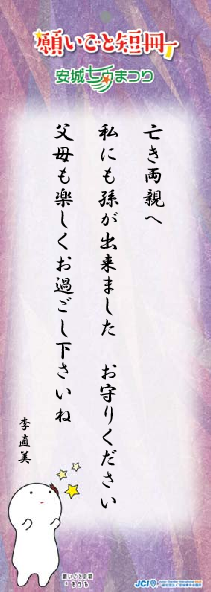 願いごと短冊
安城七夕まつり
亡き両親へ
私にも孫が出来ました お守りください
父母も楽しくお過ごし下さいね
李直美
JCI